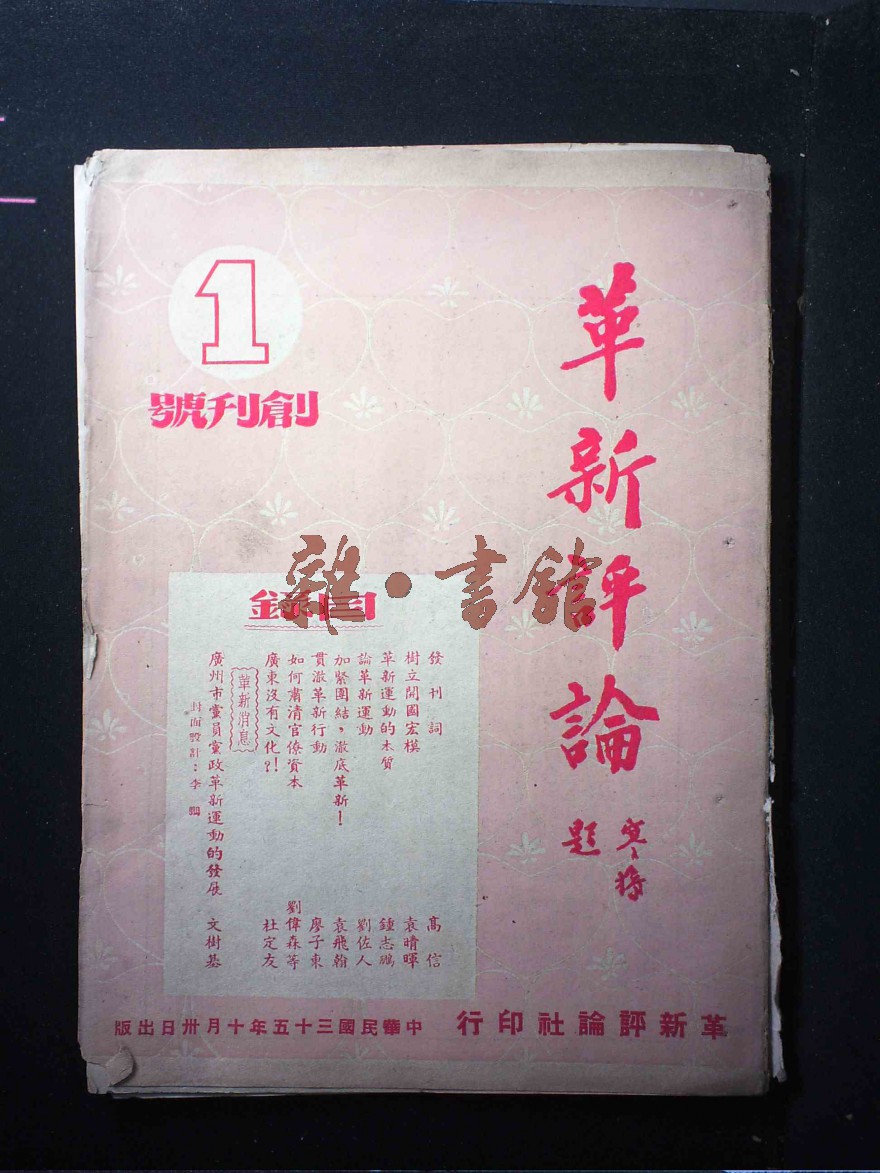 革新評論
寒操題
1
創刊號
目錄
發刊詞 高信
樹立開國宏模 袁晴暉
革新運動的本質 鍾志鵬
論革新運動 劉佐人
加緊團結，澈底革新！ 袁飛翰
貫澈革新行動 廖子東
如何肅清官僚資本 劉偉森等
廣東沒有文化?! 杜定友
革新消息
廣州市黨員黨政革新運動的發展 文樹基
封面設計：李
革新評論社印行 中華民國三十五年十月卅日出版
雜·書館